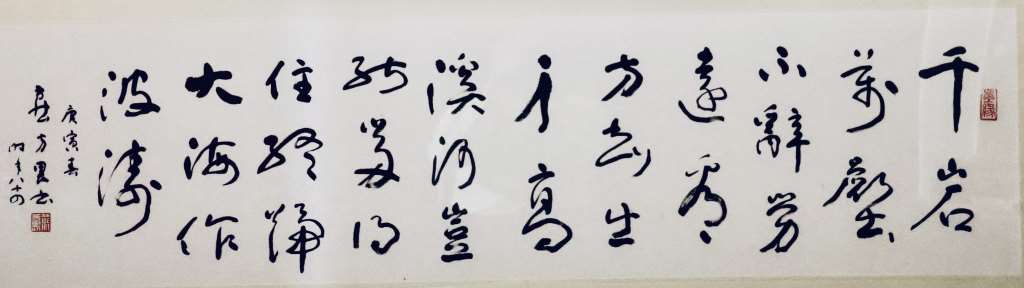 千岩
萬壑
不辭勞
遠看
方知出
處高
溪澗豈
能留得
住終歸
大海作
波濤
庚寅春
方書
時年八十